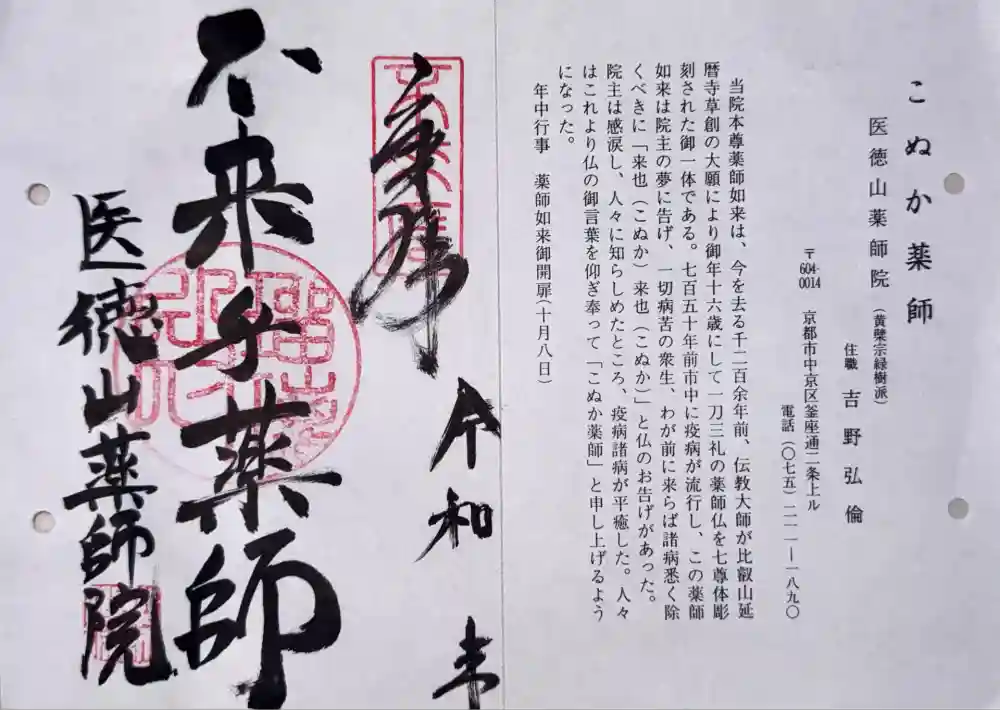 こぬか薬師
医徳山薬師院（黄檗宗緑樹派）
住職　吉野弘倫
〒604-0014　京都市中京区釜座通二条上ル
電話（〇七五）二一一―一八九〇
当院本尊薬師如来は、今を去る千二百余年前、伝教大師が比叡山延
暦寺草創の大願により御年十六歳にして一刀三礼の薬師仏を七尊体彫
刻された御一体である。七百五十年前市中に疫病が流行し、この薬師
如来は院主の夢に告げ、一切病苦の衆生、わが前に来らば諸病悉く除
くべきに「来也（こぬか）来也（こぬか）」と仏のお告げがあった。
院主は感涙し、人々に知らしめたところ、疫病諸病が平癒した。人々
はこれより仏の御言葉を仰ぎ奉って「こぬか薬師」と申し上げるよう
になった。
年中行事　薬師如来御開扉（十月八日）
奉拝
令和　年
不来乎薬師
医徳山薬師院